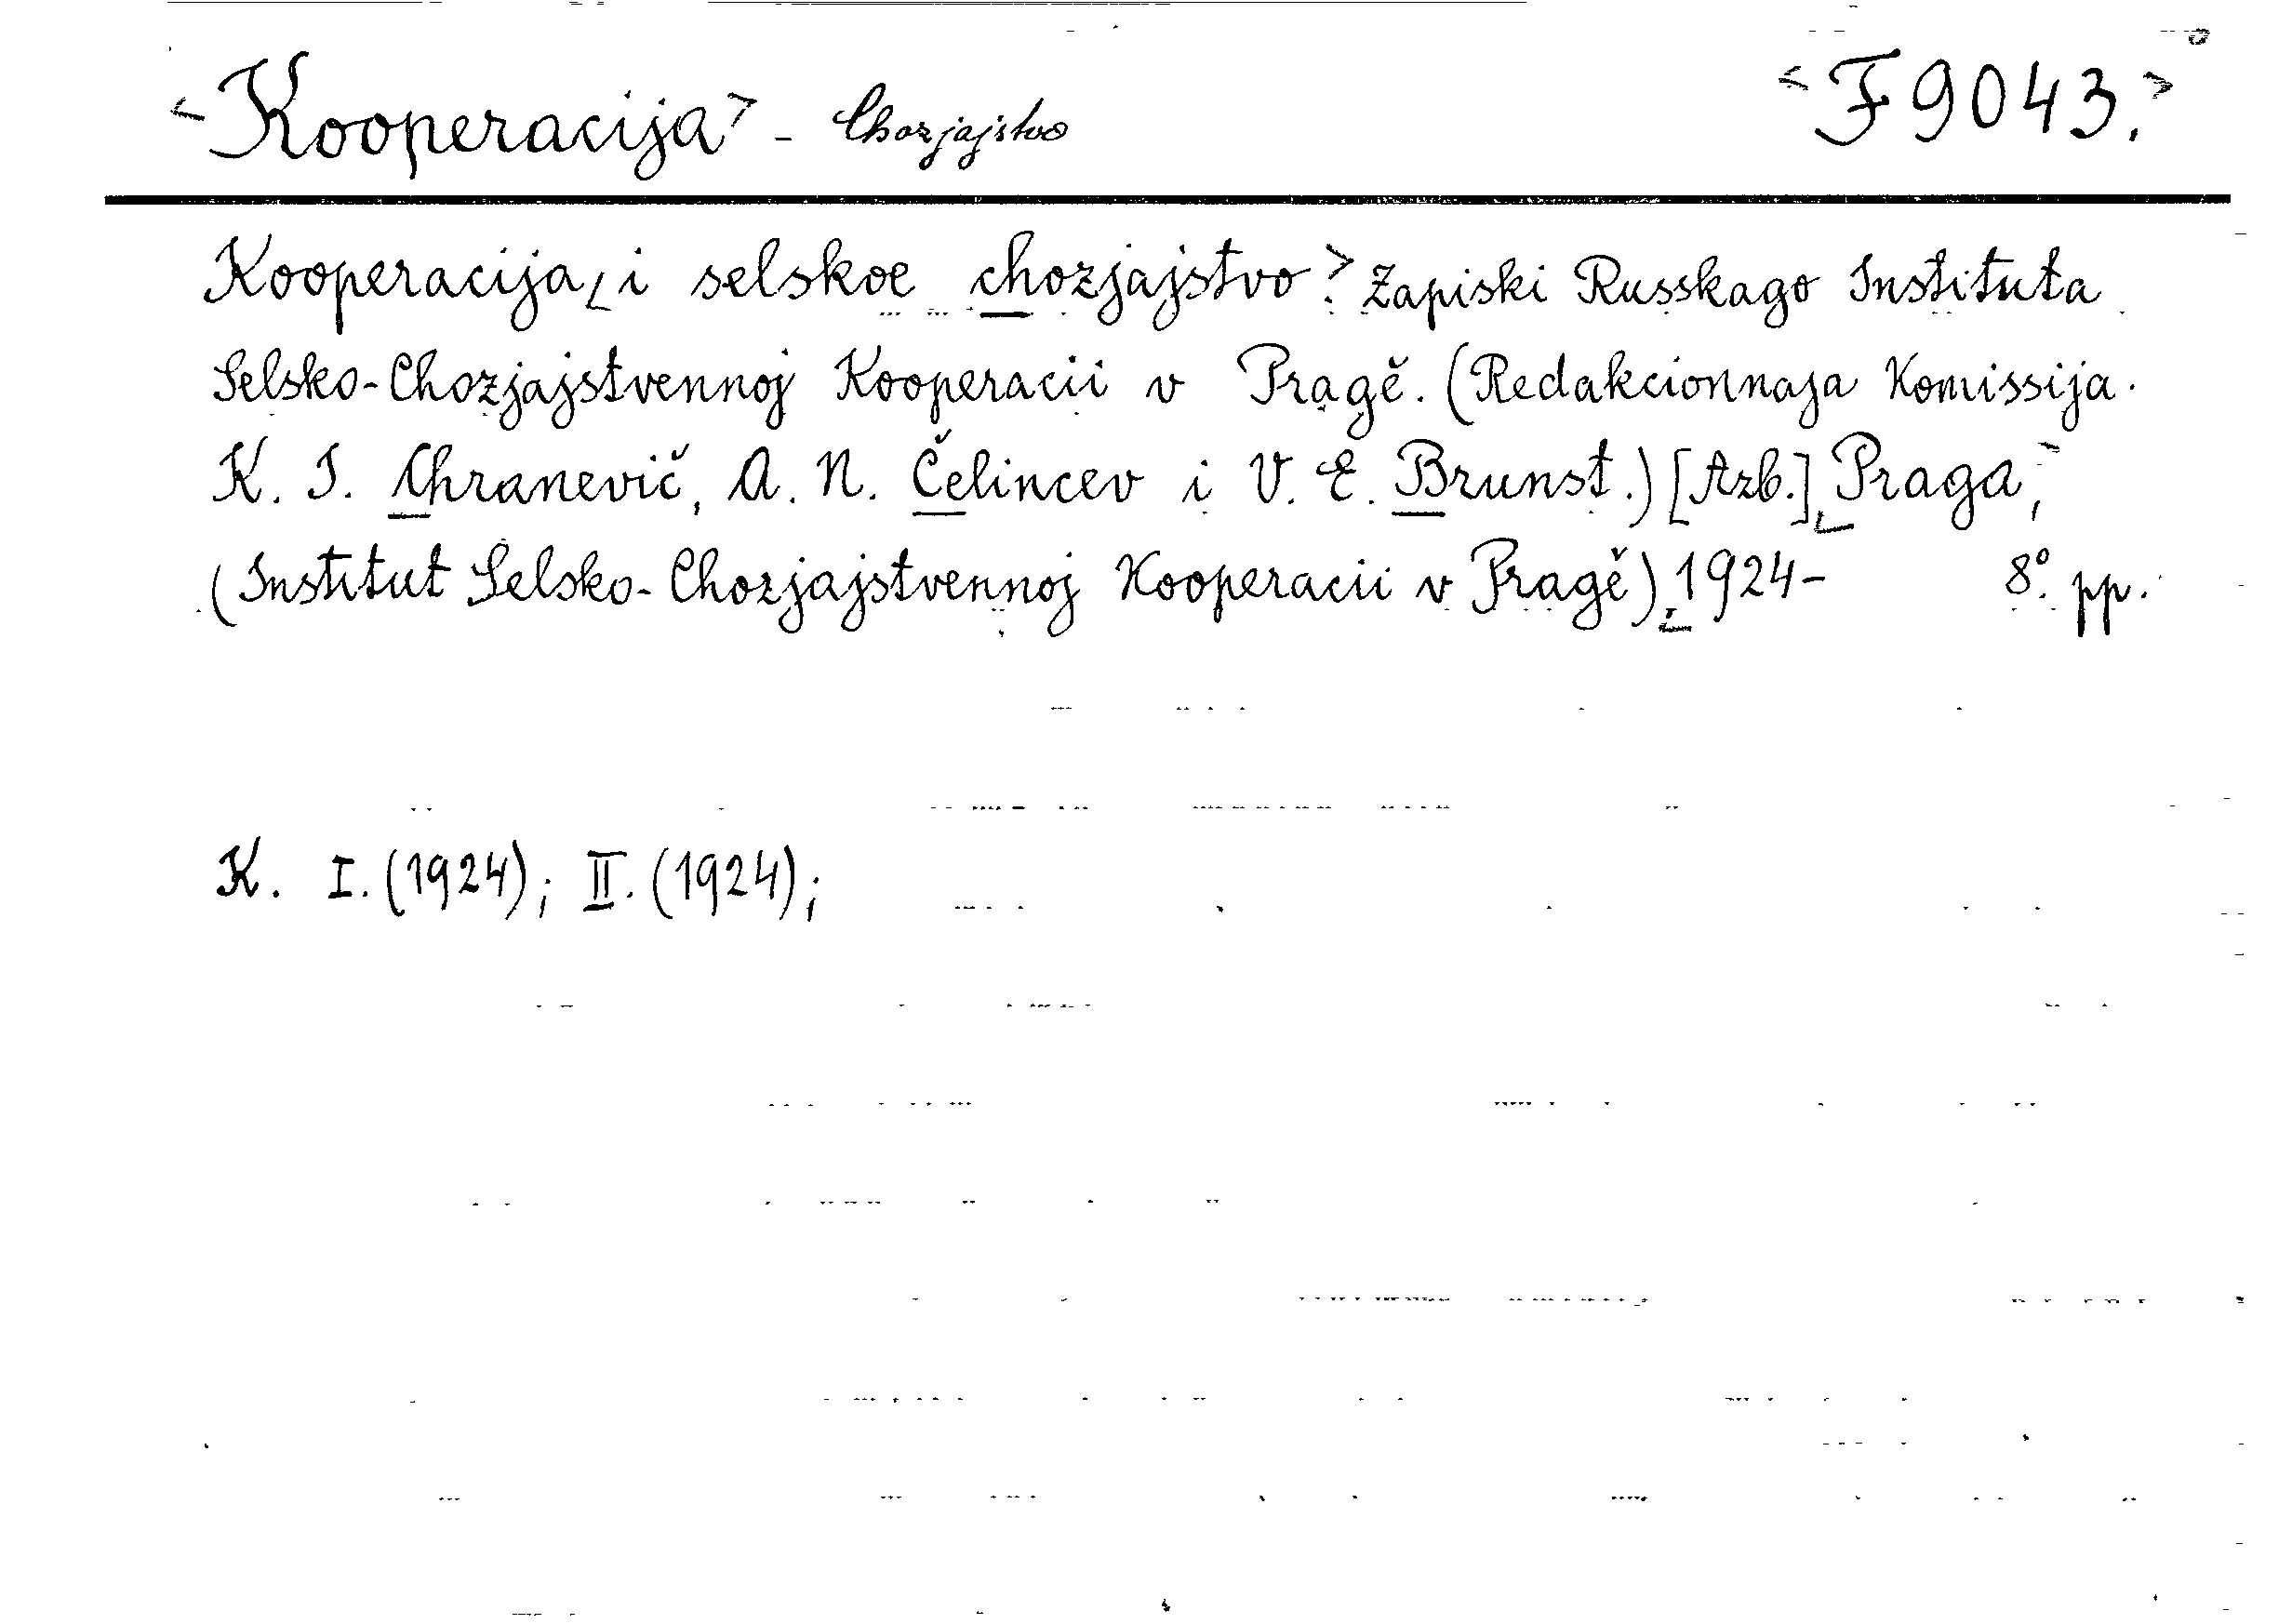 <Kooperacija> - Chozjajstvo <F 9043.>
Kooperacija < i selskoe chozjajstvo >. Zapiski Russkago Instituta
Selsko-Chozjajstvennoj Kooperacii v Pragě. (Redakcionnaja Komissija.
K. I. Chranevič, A. N. Čelincev i V. E. Brunst.) [Azb.] < Praga, >
(Institut Selsko-Chozjajstvennoj Kooperacii v Pragě) < 1924- 8°. pp.
K. I. (1924); II. (1924);